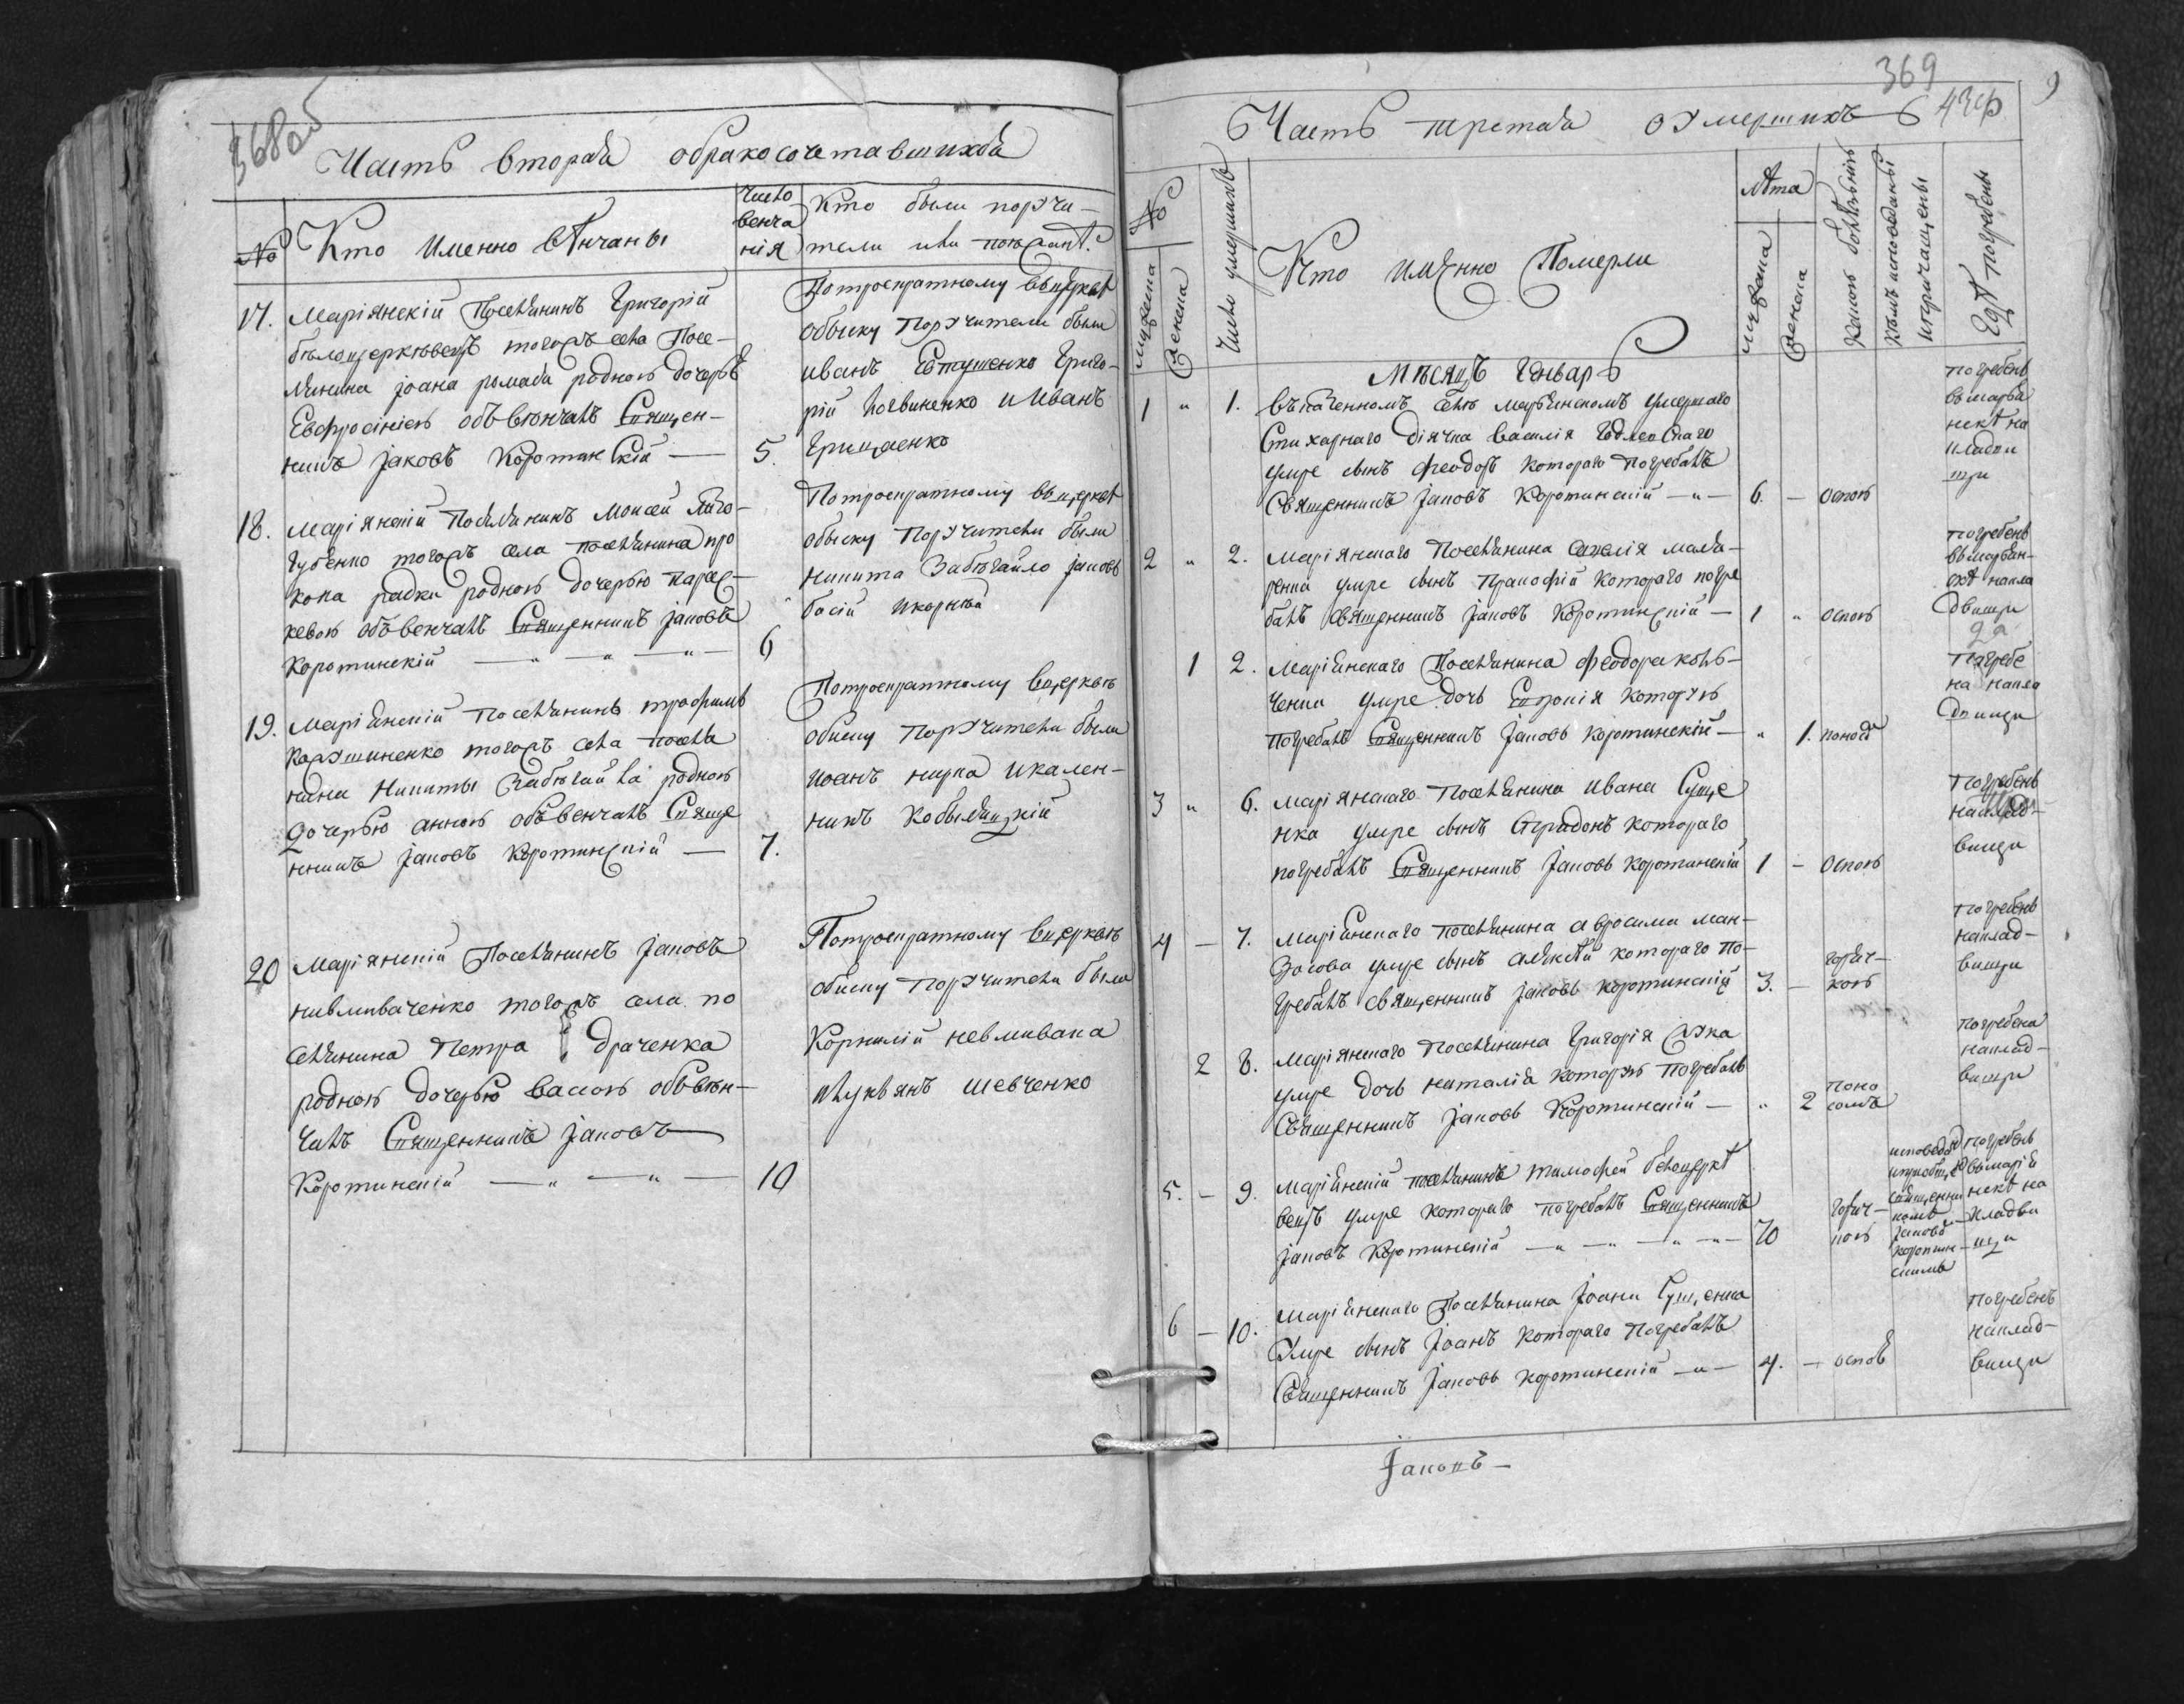 368об
Часть вторая обракосочетавшихся
№
Кто именно вѣнчаны
Число
венча
нія
Кто были поручи-
тели
17.
Маріянскій Поселянинъ Григорій
бѣлоцерковецъ тогожъ села Посе-
лянина Іоана родною дочерью
Евфросиніею объвѣнчалъ Священ-
никъ Іаковъ Коротинскій —
5.
Потроекратному вцеркве
обыску Поручители были
иванъ Евтушенко Григо-
рій Логвиненко и Иванъ
Грищенко
18.
Маріянскій Поселянинъ Моисей
тогожъ села поселянина про
копа радки родною дочерью Парас-
кевою объвенчалъ Священникъ Іаковъ
Коротинскій — " — " — " —
6
Потроекратному вцеркве
обыску Поручители были
никита Забѣгайло Іаковъ
басій
19.
Маріянскій Поселянинъ трофимъ
тогожъ села поселя
нина Никиты Забѣгайла родною
дочерью анною объвенчалъ Свяще
нникъ Іаковъ Коротинскій —
7.
Потроекратному вцерквѣ
обиску Поручители были
иоанъ икален-
никъ
20
Маріянскій Поселянинъ Іаковъ
невмываченко тогожъ села по
селянина Петра драченка
родною дочерью объвѣн-
чалъ Священникъ Іаковъ
Коротинскій — " — " —
10
Потроекратному вцерквѣ
обиску Поручители были
Корнилій невмивака
илукьянъ шевченко
369
9
Часть третая о умершихъ
№
мужеска
женска
Число умершихъ
Кто имянно Померли
лѣта
мужеска
женска
Какою болѣзнію
Кѣмъ исповѣданы
ипричащены
Гдѣ погребены
Мѣсяцъ Генварь
1 " 1.
селѣ марьянскомъ умершаго
Стихарнаго дячка василія
умре сынъ феодоръ котораго погребалъ
Священникъ Іаковъ Коротинскій — " —
6. —
оспою
погребенъ
вмарья
нскѣ на
кладви
щи
2 " 2.
Маріянскаго Поселянина
умре сынъ котораго погре
балъ священникъ Іаковъ Коротинскій —
1 "
оспою
погребенъ
вмарьян-
скѣ накла
двищи
1 2.
Маріянскаго Поселянина феодора
умре дочь которую
погребалъ Священникъ Іаковъ Коротинскій —
" 1.
Погребе
на накла
двищи
3 " 6.
Маріянскаго Поселянина Ивана Суще
нка умре сынъ Спридонъ котораго
погребалъ Священникъ Іаковъ Коротинскій
1 —
Оспою
Погребенъ
наклад-
вищи
4 — 7.
Маріянскаго поселянина авросима ман-
зосова умре сынъ алексѣй котораго по-
гребалъ священникъ Іаковъ Коротинскій
3. —
горяч-
кою
погребенъ
наклад-
вищи
2 8.
Маріянскаго Поселянина Григорія
умре дочь наталія которую погребалъ
Священникъ Іаковъ Коротинскій —
" 2
поно
сомъ
погребена
наклад-
вищи
5. — 9.
Маріянскій поселянинъ тимофей белоцеркѣ
вецъ умре котораго погребалъ Священникъ
Іаковъ Коротинскій — " — " — " — " —
70
Горяч-
кою
Священни
комъ
Іаковомъ
Коротин-
скимъ
погребенъ
вмаріа
нскѣ на
кладви
щи
6 — 10.
Маріянскаго Поселянина Іоана Сущенка
Умре сынъ Іоанъ котораго погребалъ
Священникъ Іаковъ Коротинскій — " —
4. —
оспою
погребенъ
наклад-
вищи
Іаковъ —